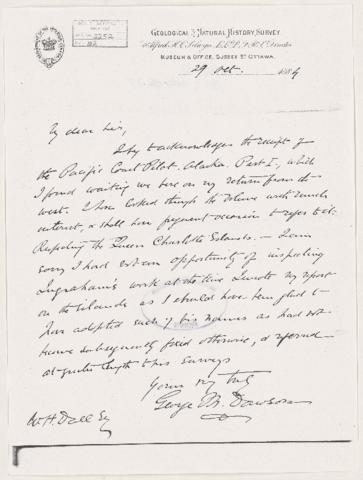 GEOLOGICAL & NATURAL HISTORY SURVEY
Alfred R. C. Selwyn, L.L.D., F.R.S., Director
MUSEUM & OFFICE, SUSSEX ST. OTTAWA.
29 Oct. 1884
My dear Sir,
I beg to acknowledge the receipt of
the Pacific Coast Pilot. Alaska. Part I, which
I found waiting me here on my return from the
west. I have looked through the volume with much
interest, & shall have frequent occasion to refer to it.
Respecting the Queen Charlotte Islands. — I am
sorry I had not an opportunity of inspecting
Ingraham's work at the time I wrote my report
on the islands as I should have been glad to
have adopted such of his names as had not
been subsequently fixed otherwise, & referred
at greater length to his surveys
Yours very truly
George M. Dawson
W.H. Dall Esq